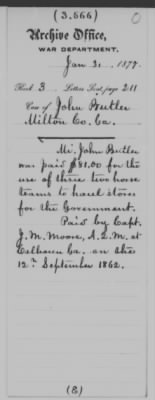 (3,666)
Archive Office,
WAR DEPARTMENT.
Jan 31 1877.
Book 3 Letters Sent, page 211
Case of John Butler
Milton Co. Ga.
Mr. John Butler
was paid $81.00 for the
use of three two horse
teams to haul stores
for the Government.
Paid by Capt.
J. M. Moore, A.Q.M. at
Calhoun Ga. on the
12th September 1862.
(8)